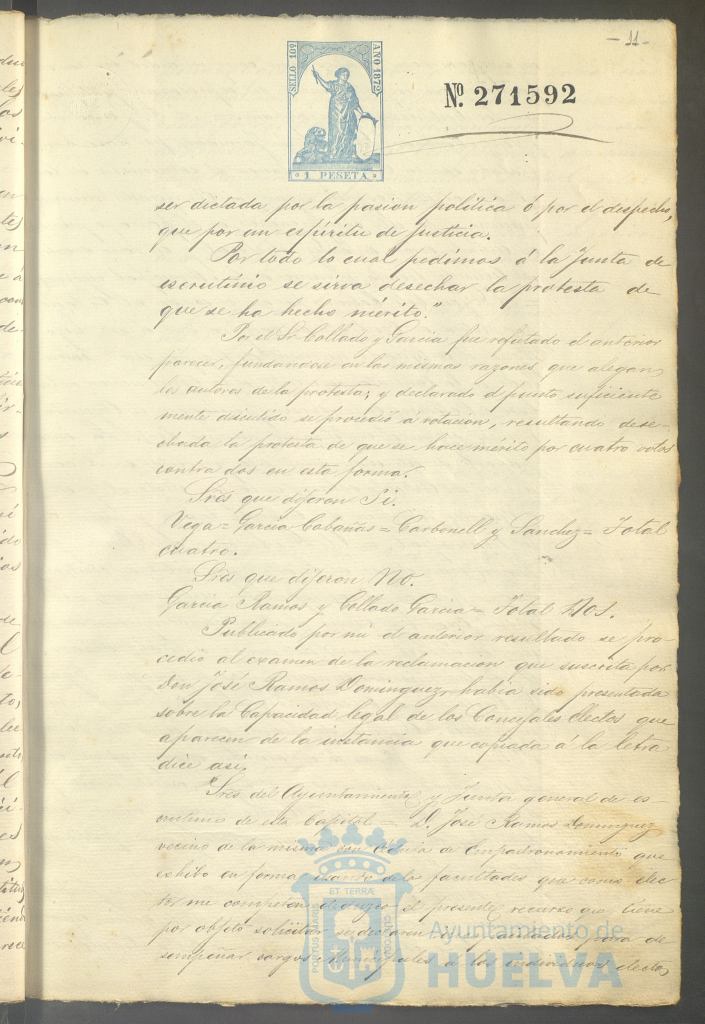 - 11 -
SELLO 10º AÑO 1872
1 PESETA
Nº 271592
ser dictada por la pasion politica ó por el despecho,
que por un espíritu de justicia.
Por todo lo cual pedimos á la Junta de
escrutinio se sirva desechar la protesta de
que se ha hecho mérito."
Por el Sr. Collado y Garcia fue refutado el anterior
parecer, fundandose en las mismas razones que alegan
los autores de la protesta; y declarado el punto suficiente
mente discutido se procedió á votacion, resultando dese-
chada la protesta de que se hace mérito por cuatro votos
contra dos en esta forma.
Sres que dijeron Si.
Vega = Garcia Cabañas = Carbonell y Sanchez = Total
cuatro.
Sres que dijeron No.
Garcia Ramos y Collado Garcia = Total dos.
Publicado por mi el anterior resultado se pro-
cedió al examen de la reclamacion que suscrita por
Don José Ramos Dominguez, habia sido presentada
sobre la Capacidad legal de los Concejales electos que
aparecen de la instancia que copiada á la letra
dice asi,
"Sres del Ayuntamiento y Junta general de es-
crutinio de esta Capital = D. José Ramos Dominguez
vecino de la misma con cédula de empadronamiento que
exhibo en forma usando de las facultades que como elec
tor me competen el presente recurso que tiene
por objeto solicitar se declaren para de
sempeñar cargos Municipales a los individuos electos
PORTUS MARIS ET TERRAE CUSTODIA
Ayuntamiento de
HUELVA